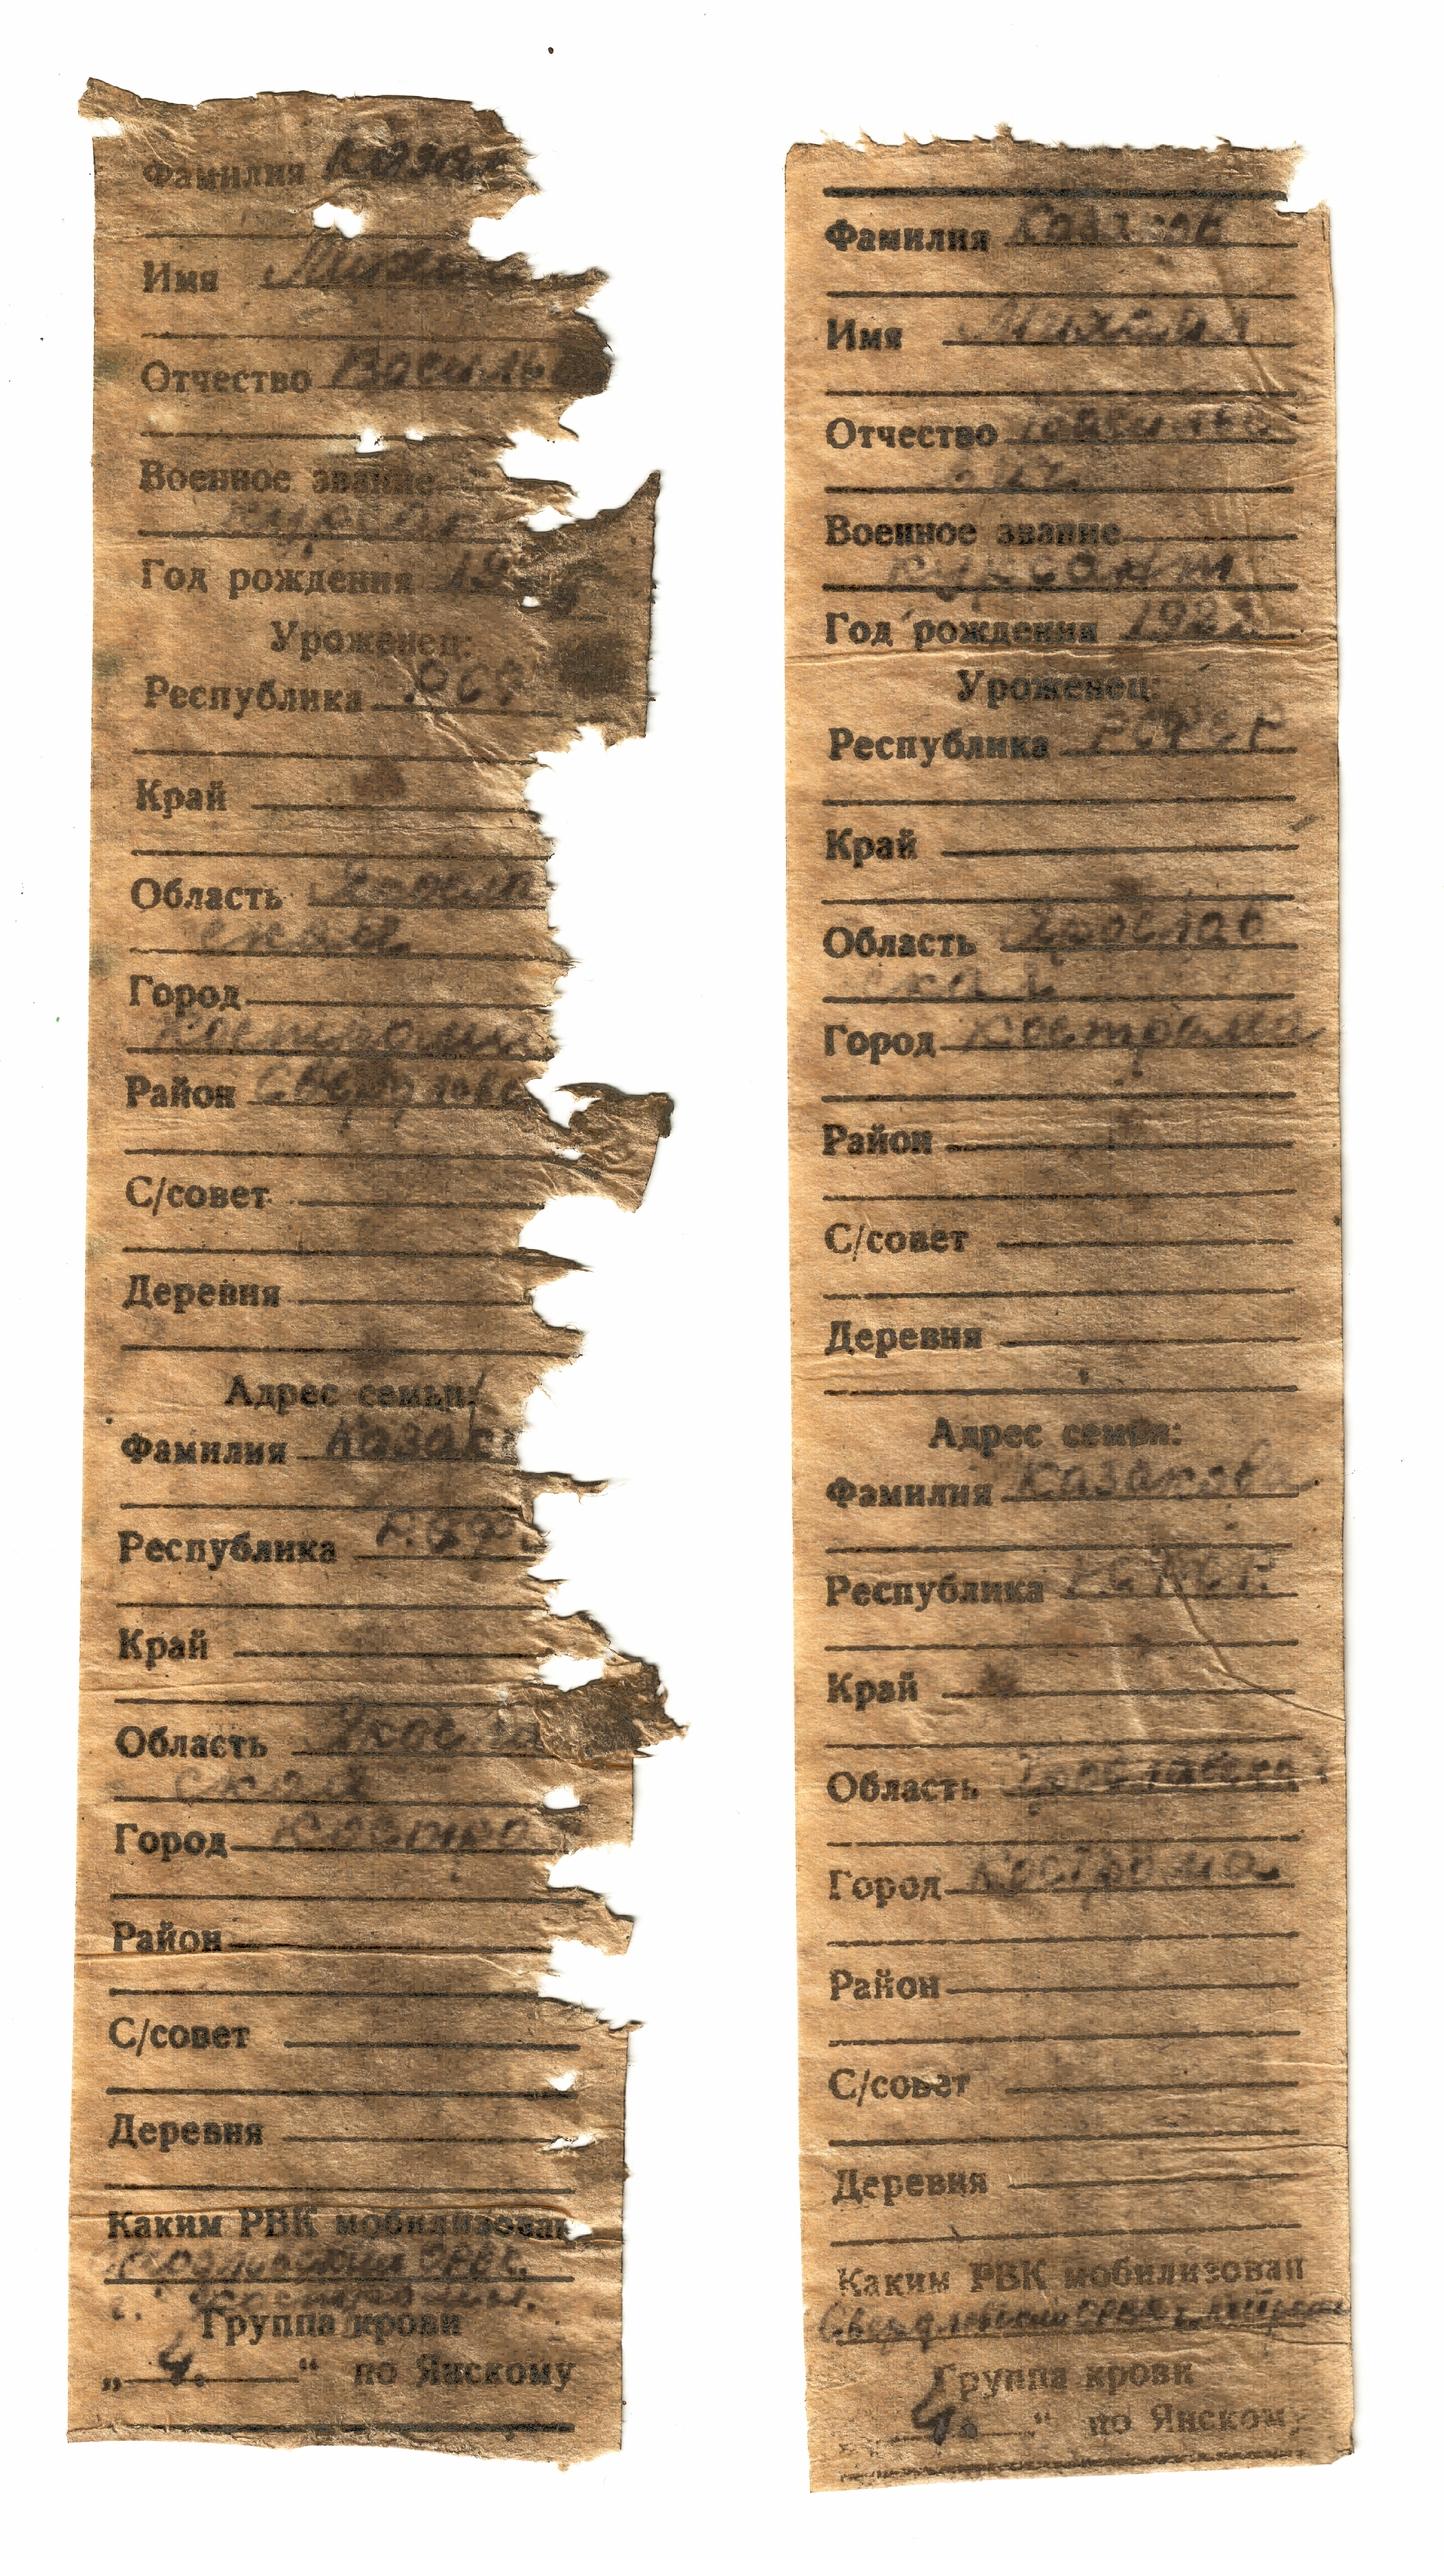 Фамилия Казак
Имя Михаи
Отчество Василье
Военное звание
курсан
Год рождения 19
Уроженец:
Республика РСФ
Край
Область Яросла
ская
Город
Кострома
Район Свердловс
С/совет
Деревня
Адрес семьи:
Фамилия Казак
Республика РСФС
Край
Область Яросла
ская
Город Костро
Район
С/совет
Деревня
Каким РВК мобилизован
г. Костромы.
Группа крови
„ 4. “ по Янскому
Фамилия Казаков
Имя Михаил
Отчество Василье
вич
Военное звание
курсант
Год рождения 1922
Уроженец:
Республика РСФСР
Край
Область Ярослав
ская
Город Кострома
Район
С/совет
Деревня
Адрес семьи:
Фамилия Казаков
Республика РСФСР.
Край
Область Ярославская
Город Кострома
Район
С/совет
Деревня
Каким РВК мобилизован
Свердловским
Группа крови
4. “ по Янскому